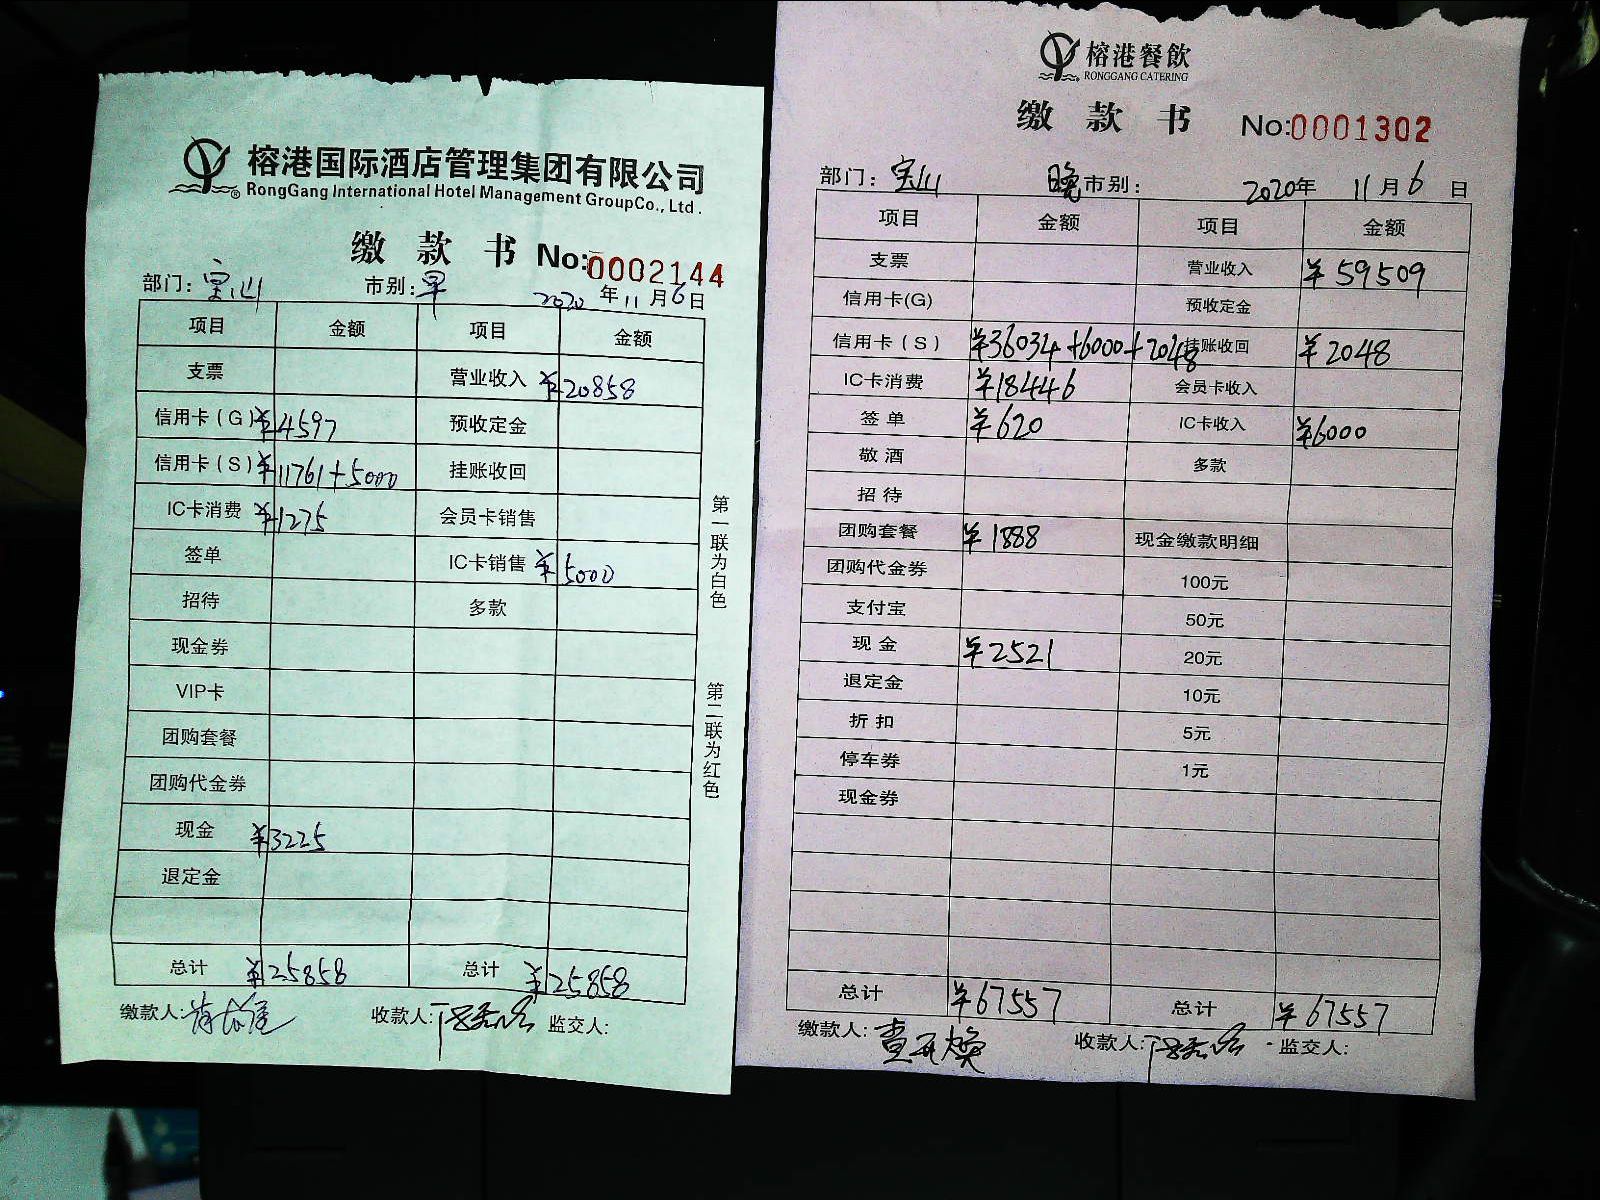 榕港国际酒店管理集团有限公司
RongGang International Hotel Management GroupCo., Ltd.
缴 款 书 No:0002144
部门: 宝山 市别: 早 2020 年 11 月 6 日
项目 金额 项目 金额
支票 营业收入 ¥20858
信用卡(G) ¥4597 预收定金
信用卡(S) ¥11761+5000 挂账收回
IC卡消费 ¥1275 会员卡销售
签单 IC卡销售 ¥5000
招待 多款
现金券
VIP卡
团购套餐
团购代金券
现金 ¥3225
退定金
总计 ¥25858 总计 ¥25858
缴款人: 收款人: 监交人:
第一联为白色
第二联为红色
榕港餐飲
RONGGANG CATERING
缴 款 书 No:0001302
部门: 宝山 晚 市别: 2020年 11月 6 日
项目 金额 项目 金额
支票 营业收入 ¥59509
信用卡(G) 预收定金
信用卡(S) ¥36034+6000+2048 挂账收回 ¥2048
IC卡消费 ¥18446 会员卡收入
签单 ¥620 IC卡收入 ¥6000
敬酒 多款
招待
团购套餐 ¥1888 现金缴款明细
团购代金券 100元
支付宝 50元
现金 ¥2521 20元
退定金 10元
折扣 5元
停车券 1元
现金券
总计 ¥67557 总计 ¥67557
缴款人: 收款人: 监交人: